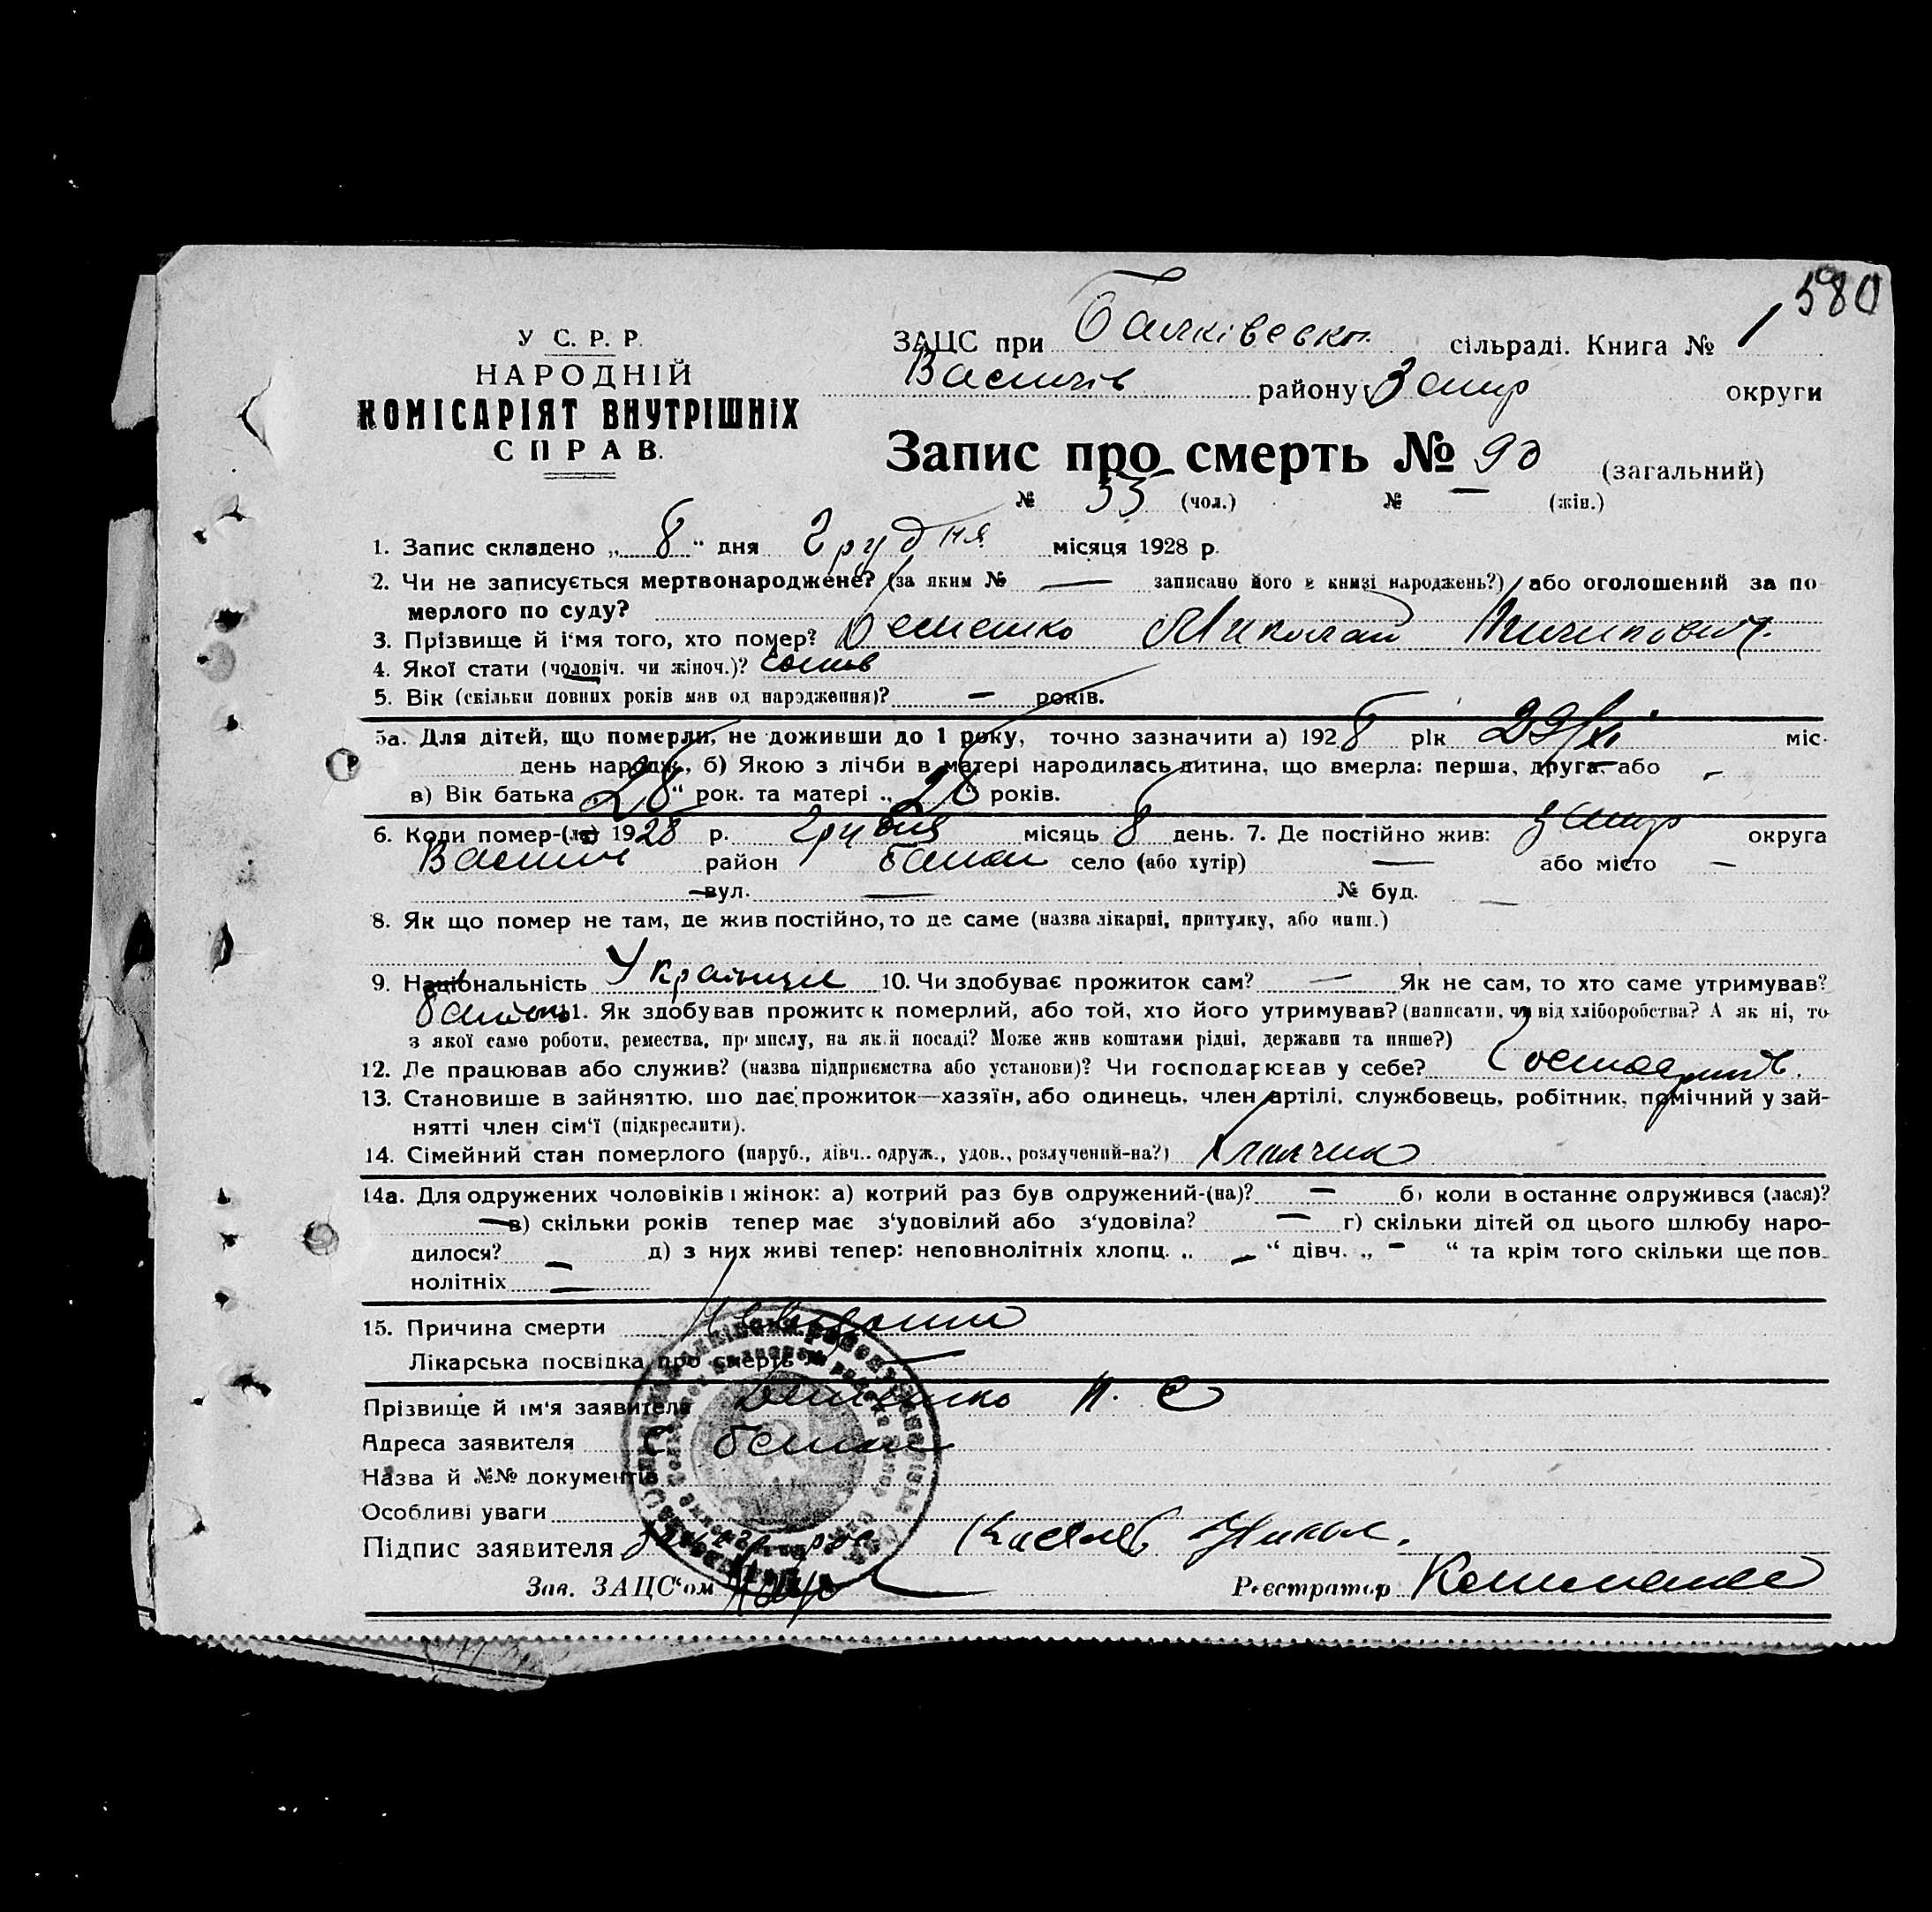 580
У С. Р. Р.
НАРОДНІЙ
КОМІСАРІЯТ ВНУТРІШНІХ
СПРАВ.
ЗАЦС при Балківськ. сільраді. Книга № 1
Василів району Запор округи
Запис про смерть № 90 (загальний)
№ 55 (чол.) № — (жін.)
1. Запис складено „ 8 “ дня Грудня місяця 1928 р.
2. Чи не записується мертвонароджене? (за яким № — записано його в книзі народжень?) або оголошений за по
мерлого по суду?
3. Прізвище й і‘мя того, хто помер? Миколай
4. Якої стати (чоловіч. чи жіноч.)?
5. Вік (скільки повних років мав од народження)? — років.
5а. Для дітей, що померли, не доживши до 1 року, точно зазначити а) 1928 рік 29/XI міс.
день народж., б) Якою з лічби в матері народилась дитина, що вмерла: перша, друга, або –
в) Вік батька „ 28 “ рок. та матері „ 28 “ років.
6. Коли помер-(ла) 1928 р. грудня місяць 8 день. 7. Де постійно жив: Запор округа
Васил район Балки село (або хутір) — або місто —
— вул. — № буд. —
8. Як що помер не там, де жив постійно, то де саме (назва лікарні, притулку, або инш.)
9. Національність Українец 10. Чи здобуває прожиток сам? — Як не сам, то хто саме утримував?
11. Як здобував прожиток померлий, або той, хто його утримував? (написати, чи від хліборобства? А як ні, то
з якої само роботи, ремества, промислу, на якій посаді? Може жив коштами рідні, держави та инше?)
12. Де працював або служив? (назва підприємства або установи)? Чи господарював у себе?
13. Становище в зайняттю, що дає прожиток—хазяїн, або одинець, член артілі, службовець, робітник, помічний у зай-
нятті член сім‘ї (підкреслити).
14. Сімейний стан померлого (паруб., дівч.. одруж., удов., розлучений-на?) Хлопчик
14а. Для одружених чоловіків і жінок: а) котрий раз був одружений-(на)? — б) коли востаннє одружився (лася)?
— в) скільки років тепер має з‘удовілий або з‘удовіла? — г) скільки дітей од цього шлюбу наро-
дилося? — д) з них живі тепер: неповнолітніх хлопц. „ – “ дівч. „ – “ та крім того скільки ще пов-
нолітніх —
15. Причина смерти
Лікарська посвідка про смерть № —
Прізвище й ім'я заявителя
Адреса заявителя с Балки
Назва й №№ документів
Особливі уваги
Підпис заявителя
Зав. ЗАЦС‘ом Реєстратор